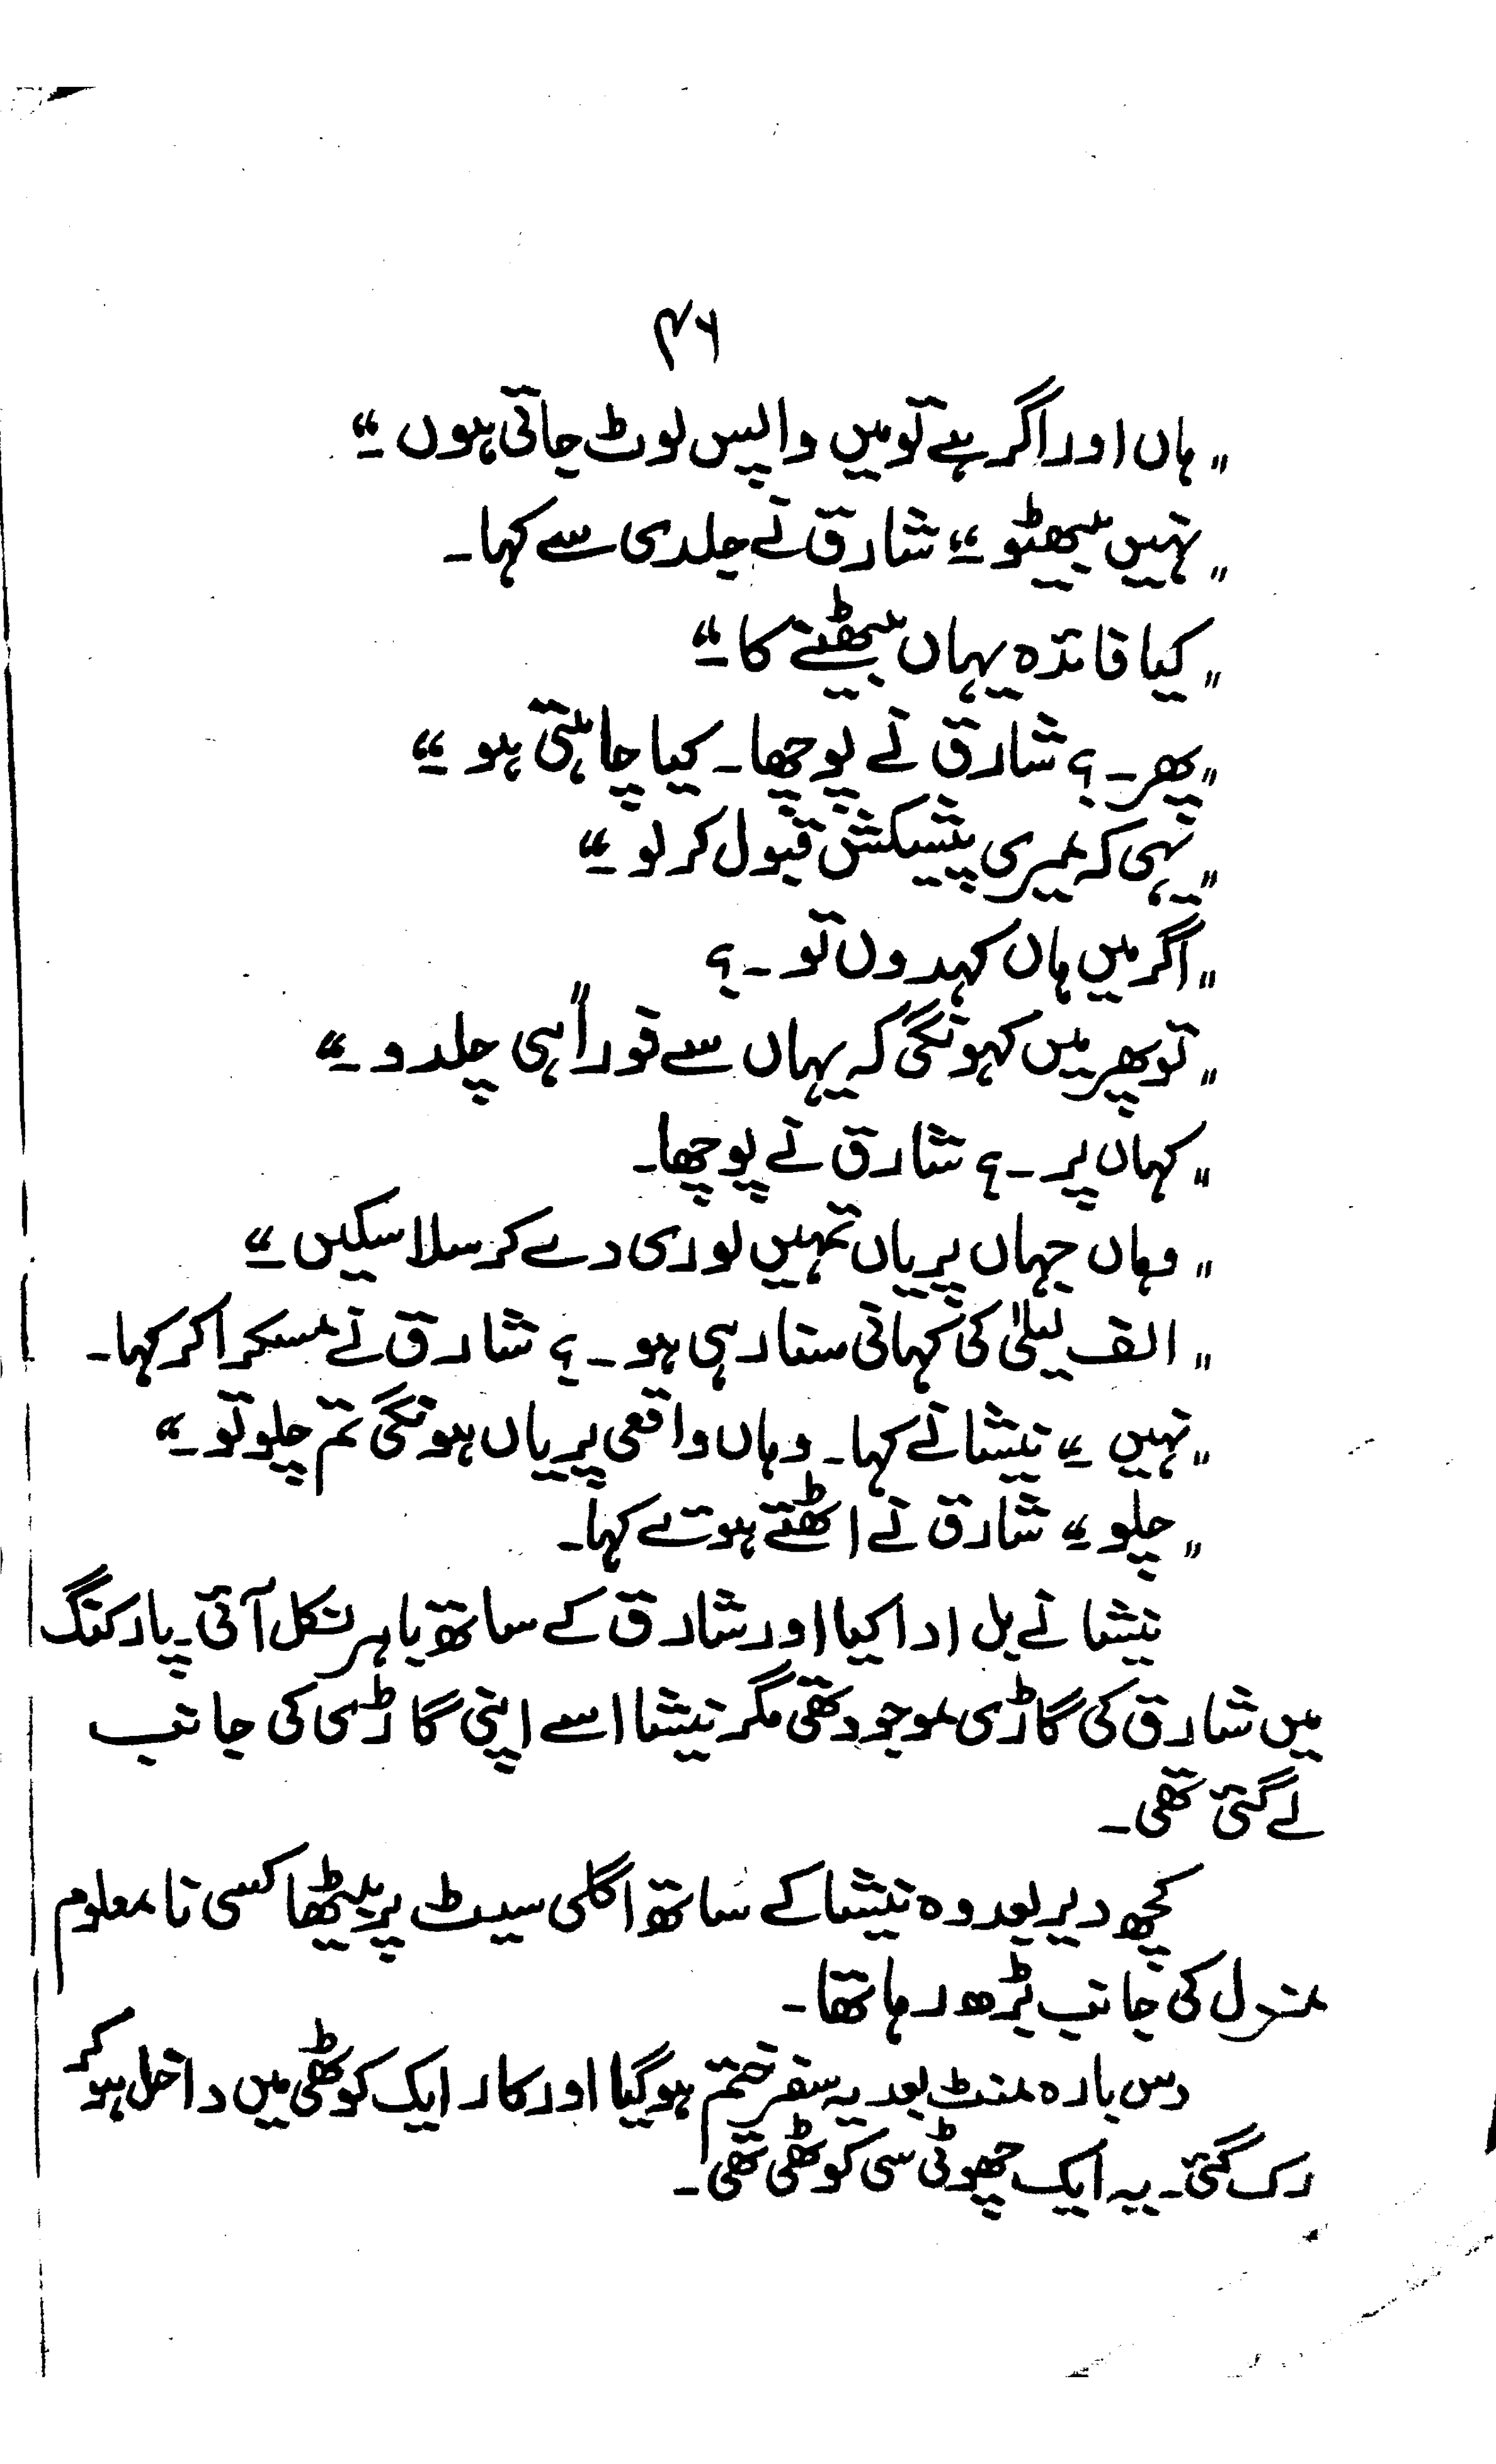 ۴۶
"ہاں اور اگر ہے تو میں واپس لوٹ جاتی ہوں۔"
"نہیں بیٹھو۔" شارق نے جلدی سے کہا۔
"کیا فائدہ یہاں بیٹھنے کا۔"
"پھر۔؟ شارق نے پوچھا۔ کیا چاہتی ہو۔"
"یہی کہ میری پیشکش قبول کر لو۔"
"اگر میں ہاں کہدوں تو۔؟"
"تو پھر میں کہونگی کہ یہاں سے فوراً ہی چلدو۔"
"کہاں پر۔؟ شارق نے پوچھا۔
"وہاں جہاں پریاں تمہیں لوری دے کر سلا سکیں۔"
"الف لیلیٰ کی کہانی سنا رہی ہو۔؟ شارق نے مسکرا کر کہا۔
"نہیں۔" نیشا نے کہا۔ وہاں واقعی پریاں ہونگی تم چلو تو۔"
"چلو۔" شارق نے اٹھتے ہوتے کہا۔
نیشا نے بل ادا کیا اور شارق کے ساتھ باہر نکل آئی۔ پارکنگ
میں شارق کی گاڑی موجود تھی مگر نیشا اسے اپنی گاڑی کی جانب
لے گئی تھی۔
کچھ دیر بعد وہ نیشا کے ساتھ اگلی سیٹ پر بیٹھا کسی نا معلوم
منزل کی جانب بڑھ رہا تھا۔
دس بارہ منٹ بعد یہ سفر ختم ہو گیا اور کار ایک کوٹھی میں داخل ہو کر
رک گئی۔ یہ ایک چھوٹی سی کوٹھی تھی۔